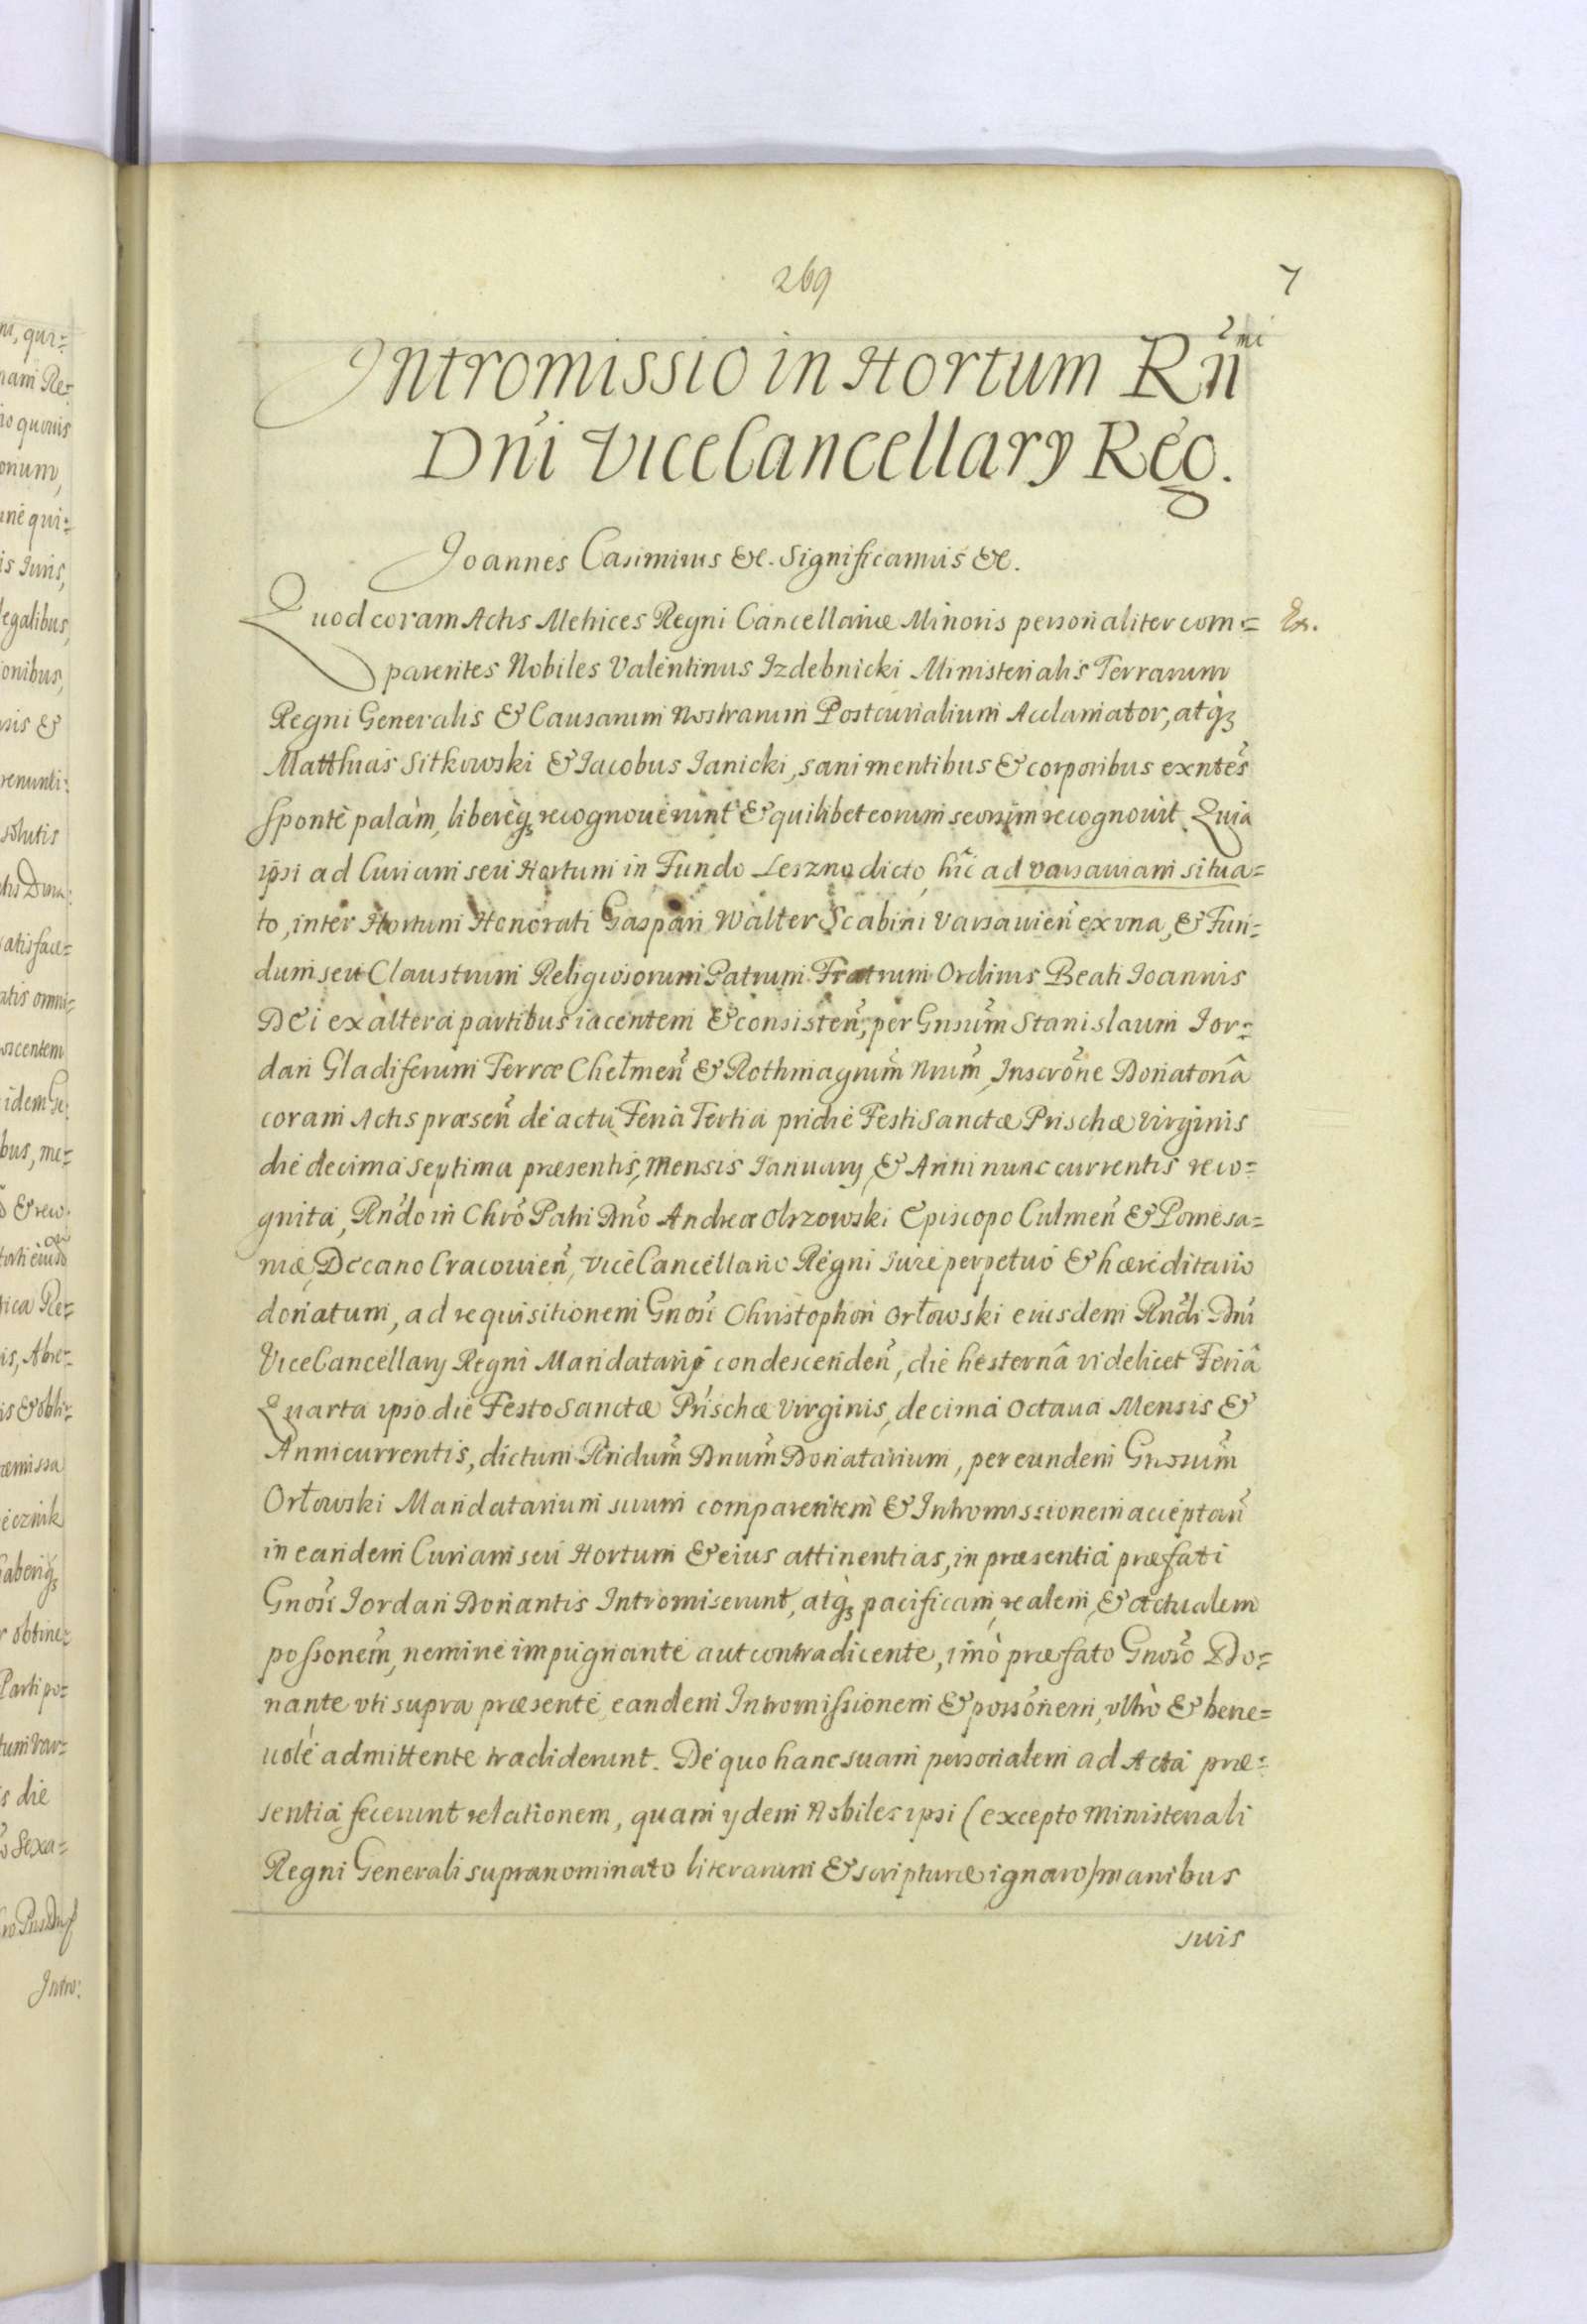 269
7
Intromissio in Hortum Rñmi
Dńi ViceCancellarÿ Reg.
Joannes Casimirus &c. Significamus &c.
Quod coram Actis Metrices Regni Cancellariæ Minoris personaliter com=
parentes Nobiles Valentinus Izdebnicki Ministerialis Terrarum
Regni Generalis & Causarum Nostrarum Postcurialium Acclamator, atq́ꝫ
Matthias Sitkowski & Iacobus Ianicki, sani mentibus & corporibus exñtes
sponte palàm, liberèqꝫ recognouerunt & quilibet eorum seorsim recognouit. Quia
ipsi ad Curiam seu Hortum in Fundo Leszno dicto, hîc ad Varsauiam situa=
to, inter Hortum Honorati Gaspari Walter Scabini Varsauień ex vna, & Fun=
dum seu Claustrum Religiosorum Patrum Fratrum Ordinis Beati Ioannis
Dei ex altera partibus iacentem & consisteñ, per Gnsum̃ Stanislaum Ior=
dan Gladiferum Terræ Chełmeñ & Rothmagrum̃ Nrum̃, Inscrõne Donatoriâ
coram Actis præseñ de actu Feria Tertia pridie Festi Sanctæ Prischæ Virginis
die decima Septima præsentis, Mensis Ianuarÿ, & Anni nunc currentis reco=
gnita, Rńdo in Chrõ Patri Dnõ Andreæ Olszowski Episcopo Culmeñ & Pomesa=
niæ, Decano Cracouień, ViceCancellario Regni Iure perpetuo & hæreditario
donatum, ad requisitionem Gnosi Christophori Orłowski eiusdem Rńdi Dńi
ViceCancellarÿ Regni Mandatarÿ condescendeñ, die hesternâ videlicet Feriâ
Quarta ipso die Festo Sanctæ Prischæ Virginis, decima Octaua Mensis &
Anni currentis, dictum Rndum̃ Dnum̃ Donatarium, per eundem Gnosum̃
Orłowski Mandatarium suum comparentem & Intromissionem acceptań
in eandem Curiam seu Hortum & eius attinentias, in præsentia præfati
Gnosi Iordan Donantis Intromiserunt, atqꝫ pacificam, realem, & actualem
possonem̃, nemine impugnante aut contradicente, imò præfato Gnosõ Do=
nante vti supra præsente, eandem Intromissionem & possõnem, vltrò & bene=
uolé admittente tradiderunt. De quo hanc suam personalem ad Acta præ=
sentia fecerunt relationem, quam ÿdem Nobiles ipsi (excepto Ministeriali
Regni Generali supranominato literarum & scripturæ ignaro) manibus
suis